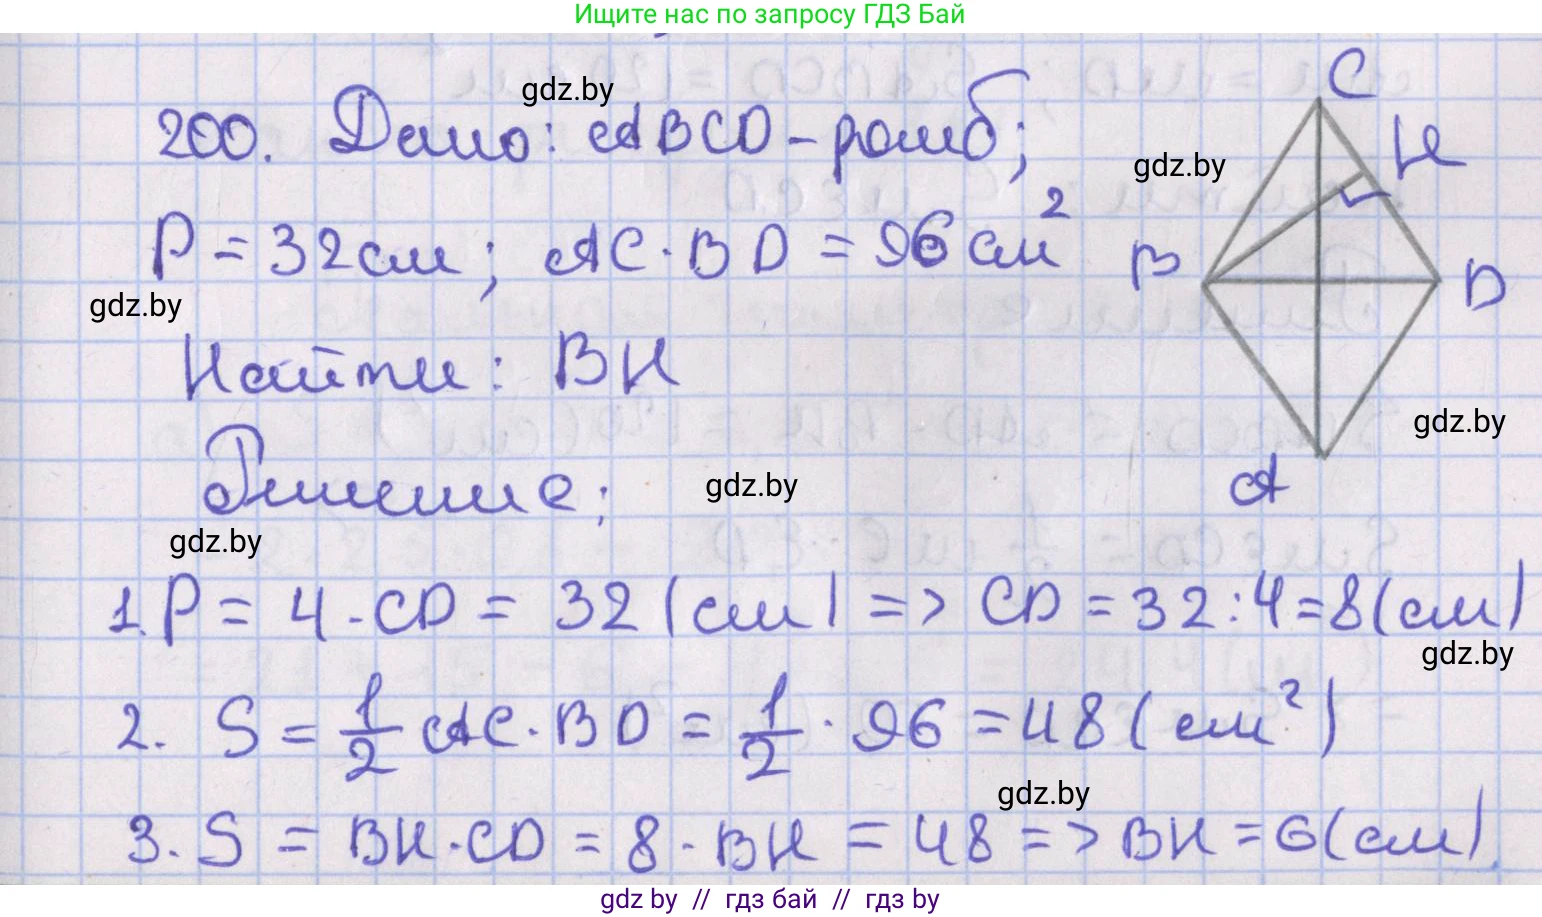 Ищите нас по запросу ГДЗ Бай
200. Дано: ABCD - ромб;
gdz.by
P = 32 см; AC · BD = 96 см²
gdz.by
Найти: BH
Решение:
gdz.by
gdz.by
C
H
gdz.by
B
D
gdz.by
A
1. P = 4 · CD = 32 (см) => CD = 32 : 4 = 8 (см)
gdz.by
2. S = 1/2 AC · BD = 1/2 · 96 = 48 (см²)
gdz.by
3. S = BH · CD = 8 · BH = 48 => BH = 6 (см).
gdz by // гдз бай // гдз by